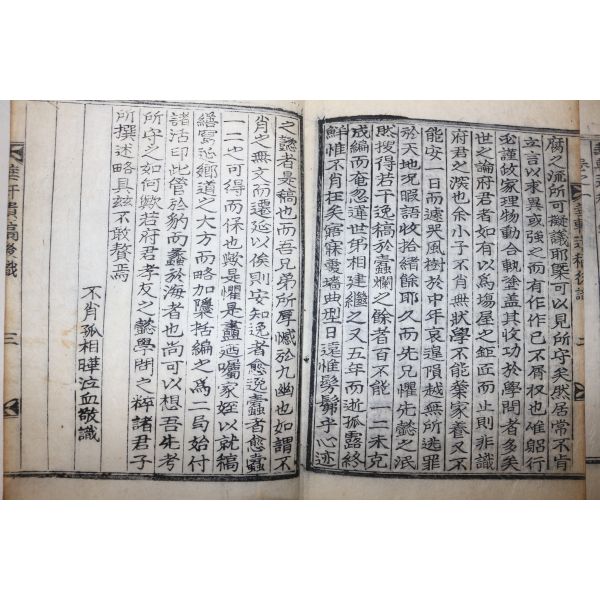 腐之流所可擬議耶槩可以見所守矣然居常不肯
立言以求異或強之而有作作已不屑也惟躬行
謹故家理物動合軌塗盖其收功於學問者多矣
世之論府君者如有以爲場屋之鉦而止則非識
府君之深也余小子不肖無狀學不能葉家養又不
能安一日而遽哭風樹於中年哀遑隕越無所逃罪
於天地況暇語收拾緖餘耶久而先兄懼先懿之泯
然搜得若干逸稿於蠹爛之餘者百不能一二未克
成編而奄忽違世弟相建繼之又五年而逝孤露終
鮮惟不肖在矣寤寐靈墻典型日遠惟髣髴乎心迹
之懿者是稿也而吾兄弟所厚慽於九幽也如謂不
肖之無文而遷延以俟則安知逸者愈逸蠹者愈蠹
一二也可得而保也歟是懼是盡迺囑家姪以就稿
繕寫忘鄕道之大方而略加檃括編之爲二局始付
諸活印此管於豹而蠡於海者也尙可以想吾先考
所守之如何歟若府君孝友之懿學問之粹諸君子
所撰述略具玆不敢贅焉
不肖孤相曄泣血敬識
軒遺稿後識
三